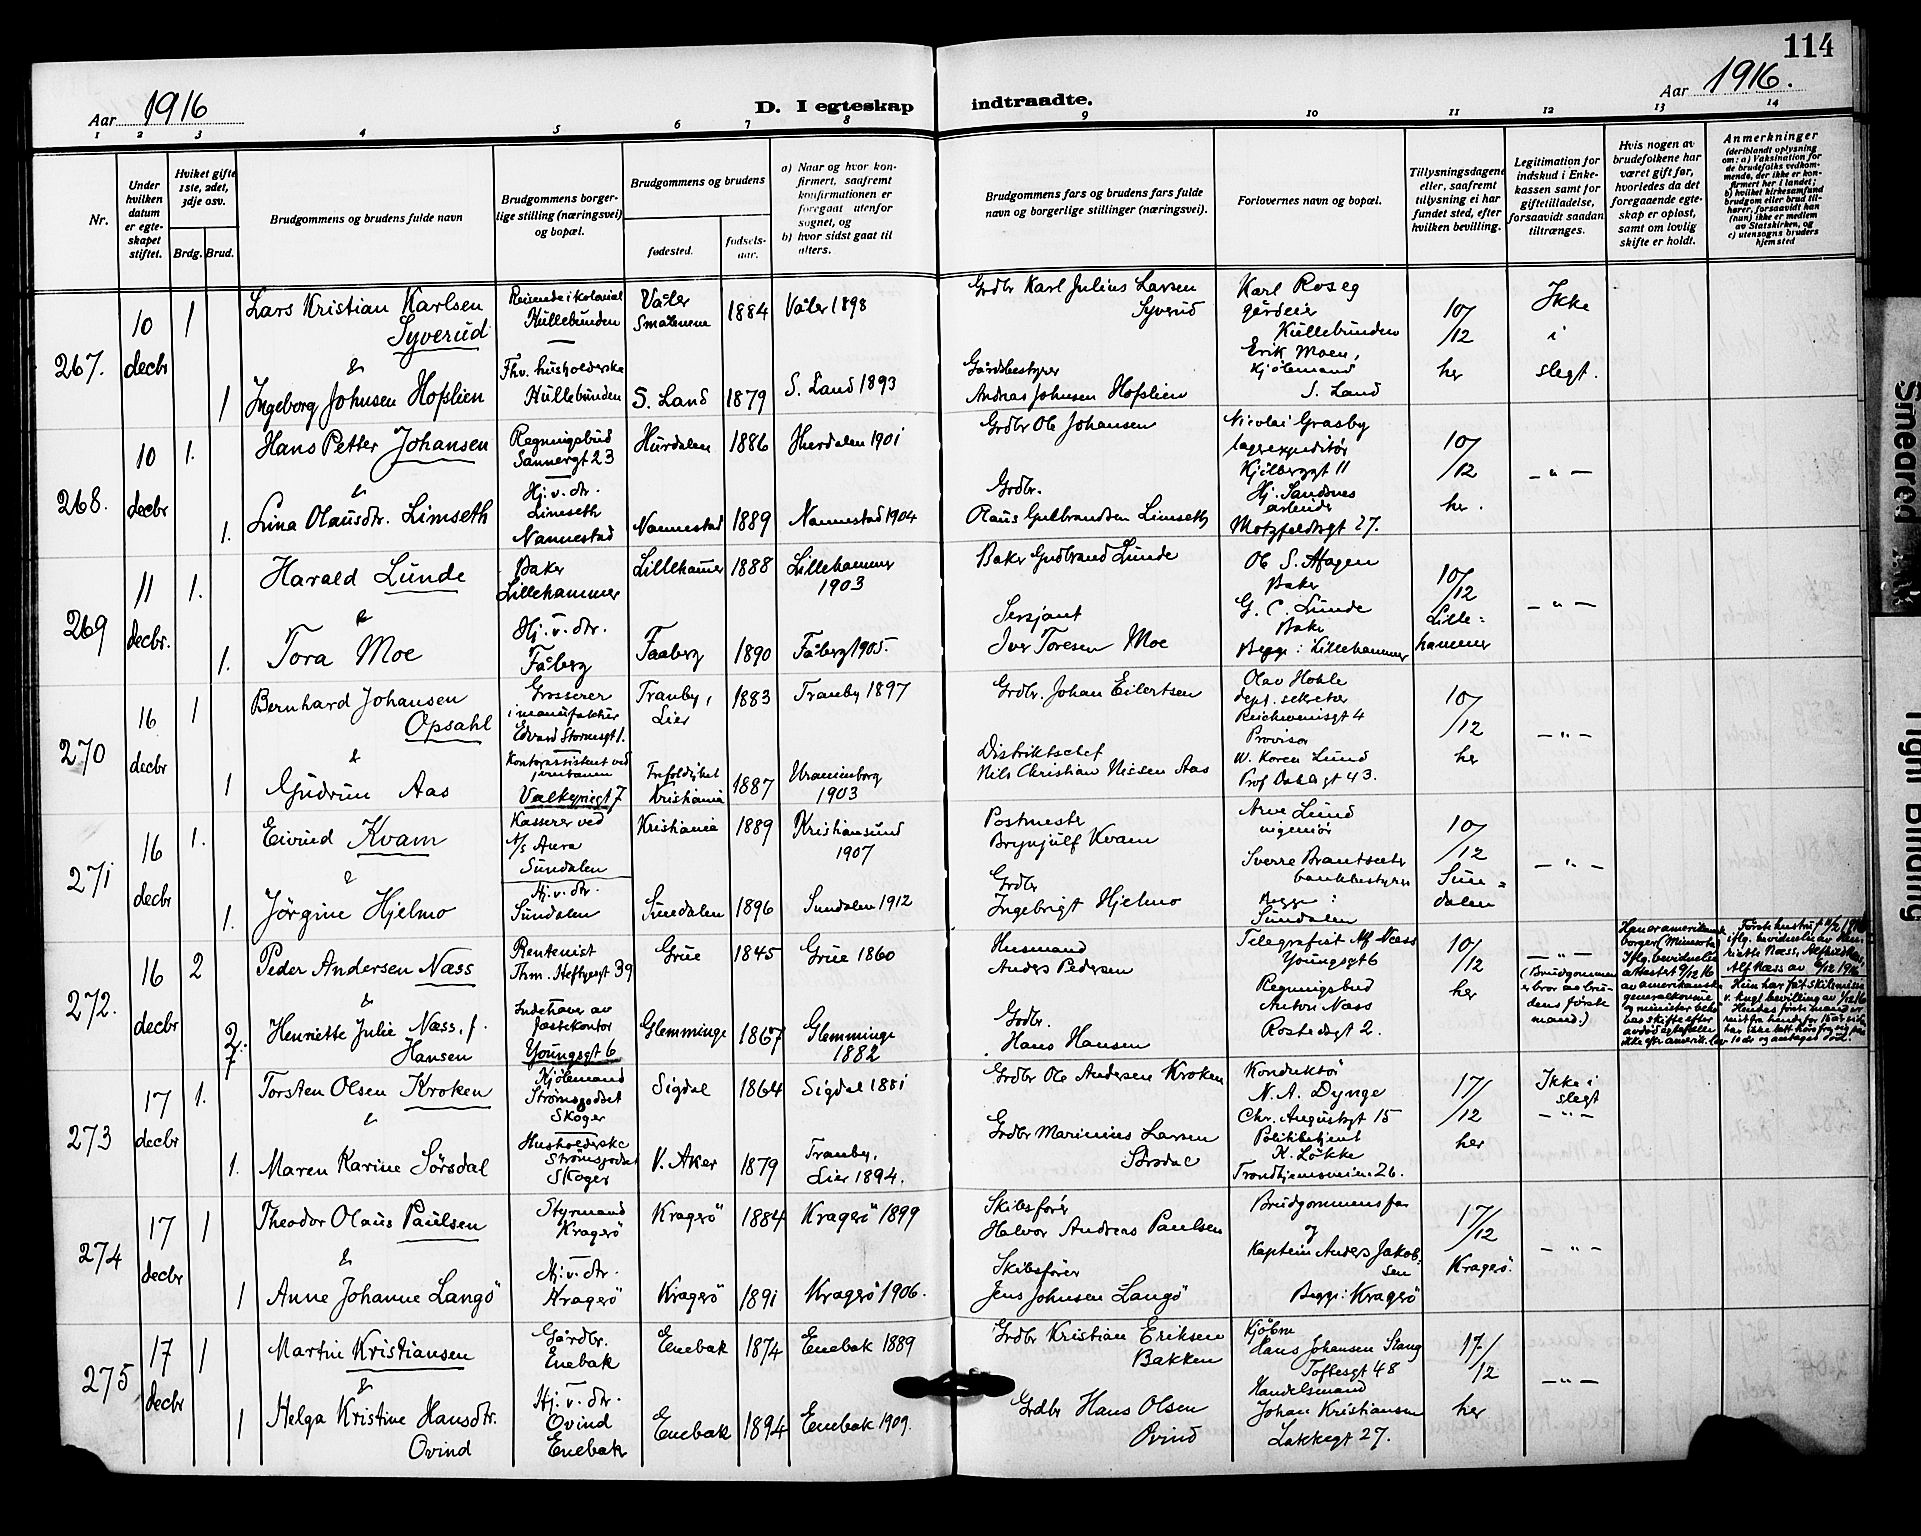 114
Aar 1916
D. I egteskap
indtraadte.
Aar 1916.
1 2 3 4 5 6 7 8 9 10 11 12 13 14
Nr.
Under hvilken datum er egteskapet stiftet.
Hvilket gifte 1ste, 2det, 3dje osv.
Brdg. Brud.
Brudgommens og brudens fulde navn
Brudgommens borgerlige stilling (næringsvei) og bopæl.
Brudgommens og brudens
fødested.
fødselsaar.
a) Naar og hvor konfirmert, saafremt konfirmationen er foregaat utenfor sognet, og
b) hvor sidst gaat til alters.
Brudgommens fars og brudens fars fulde navn og borgerlige stillinger (næringsvei).
Forlovernes navn og bopæl.
Tillysningsdagene eller, saafremt tillysning ei har fundet sted, efter hvilken bevilling.
Legitimation for indskud i Enkekassen samt for giftetilladelse, forsaavidt saadan tiltrænges.
Hvis nogen av brudefolkene har været gift før, hvorledes da det foregaaende egteskap er opløst, samt om lovlig skifte er holdt.
Anmerkninger
(deriblandt oplysning om: a) Vaksination for de brudefolks vedkommende, der ikke er konfirmert her i landet; b) hvilket kirkesamfund brudgom eller brud tilhører, forsaavidt han (hun) ikke er medlem av Statskirken, og c) utensogns bruders hjemsted
267.
10 decbr
1
Lars Kristian Karlsen Syverud
&
1 Ingeborg Johnsen Hofslien
Reisende i kolonial
Hullebunden
Fhv. husholderske
Hullebunden
Våler Smålenene 1884 Våler 1898
S. Land 1879 S. Land 1893
Grdbr Karl Julius Larsen Syverud
Gårdsbestyrer
Andreas Johnsen Hofslien
Karl Roseg
gårdeier
Hullebunden
Erik Moen,
Kjølemand
S. Land
10/12 her
Ikke i slegt.
268.
10 decbr
1.
Hans Petter Johansen
&
1. Lina Olausdtr. Limseth
Regningsbud
Sannergt 23
Hj. v. dtr.
Limseth
Nannestad
Hurdalen 1886 Hurdalen 1901
Nannestad 1889 Nannestad 1904
Grdbr Ole Johansen
Grdbr.
Olaus Gulbrandsen Limseth
Nicolai Grasby
lagerexpeditør
Kjølberggt 11
Hj. Sandnes
arbeider
Motzfeldtsgt 27.
10/12 her.
– " –
269
11 decbr.
1.
Harald Lunde
&
1. Tora Moe
Baker
Lillehammer
Hj. v. dtr.
Fåberg
Lillehamer 1888 Lillehammer 1903
Faaberg 1890 Fåberg 1905.
Baker Gudbrand Lunde
Sersjant
Iver Toresen Moe
Baker
G. C. Lunde
Baker
Begge: Lillehammer
10/12 Lillehammer
– " –
270
16 decbr
1
Bernhard Johansen Opsahl
&
1 Gudrun Aas
Grosserer
i manufaktur
Edvard Stormsgt 1.
Kontorassistent ved
jernbanen
Valkyriegt 7
Tranby, Lier 1883 Tranby 1897
Kristiania 1887 Uranienborg 1903
Grdbr. Johan Eilertsen
Distriktschef
Nils Christian Nissen Aas
Olav Hohle
dept. sekretær
Reichweinsgt 4
Provisor
W. Koren Lund
Prof Dahlsgt 43.
10/12 her
– " –
271
16 decbr
1.
Eivind Kvam
&
1. Jörgine Hjelmo
Kasserer ved
A/s Aura
Sundalen
Hj. v. dtr.
Sundalen
Kristiania 1889 Kristiansund 1907
Sundalen 1896 Sundalen 1912
Postmester
Brynjulf Kvam
Grdbr
Ingebrigt Hjelmo
Arne Lund
ingeniør
Sverre Brantsæter
bankbestyrer
Begge:
Sundalen
10/12 Sundalen
– " –
272.
16 decbr
2
Peder Andersen Næss
&
2. Henriette Julie Næss. f. Hansen
Rentenist
Thm. Heftyesgt 39
Indehaver av
fæstekontor
Youngsgt 6
Grue 1845 Grue 1860
Glemminge 1867 Glemminge 1882
Husmand
Anders Pedersen
Grdbr.
Hans Hansen
Telegrafist Alf Næss
Youngsgt 6
Regningsbud
Anton Næss
Rostedsgt 2.
10/12 her
– " –
(Brudgommen er bror av brudens første mand.)
Han er amerikansk borger (Minnesota) Iflg. bevidnelse attestert 9/12 16 av amerikansk generalkonsul
273
17 decbr
1.
Torsten Olsen Kroken
&
1. Maren Karine Sørsdal
Kjølemand
Strømsgodset
Skoger
Husholderske
Strømsgodset
Skoger
Sigdal 1864 Sigdal 1881
V. Aker 1879 Tranby, Lier 1894.
Grdbr Ole Andersen Kroken
Grdbr Marinius Larsen Sørsdal
Konduktør
N. A. Dynge
Chr. Augustsgt 15
Politibetjent
K. Løkke
Trondhjemsveien 26.
17/12 her
Ikke i slegt
– " –
274
17 decbr
1
Theodor Olaus Paulsen
&
1 Anne Johanne Langö
Styrmand
Kragerö
Hj. v. dtr.
Kragerö
Kragerö 1884 Kragerö 1899
Kragerö 1891 Kragerö 1906.
Skibsfører
Halvor Andreas Paulsen
Skibsfører
Jens Johnsen Langö
Brudgommens far
og
Kaptein Anders Jakobsen
Begge: Kragerö
17/12 Kragerö.
– " –
275
17 decbr
1
Martin Kristiansen
&
1 Helga Kristine Hansdtr. Ovind
Gårdbr.
Enebak
Hj. v. dtr.
Ovind
Enebak
Enebak 1874 Enebak 1889
Enebak 1894 Enebak 1909.
Grdbr Kristian Eriksen Bakken
Grdbr Hans Olsen Ovind
Kjøbm
Hans Johansen Stang
Toftesgt 48
Handelsmand
Johan Kristiansen
Lakkegt 27.
17/12 her
– " –
Smeared
Tight Binding